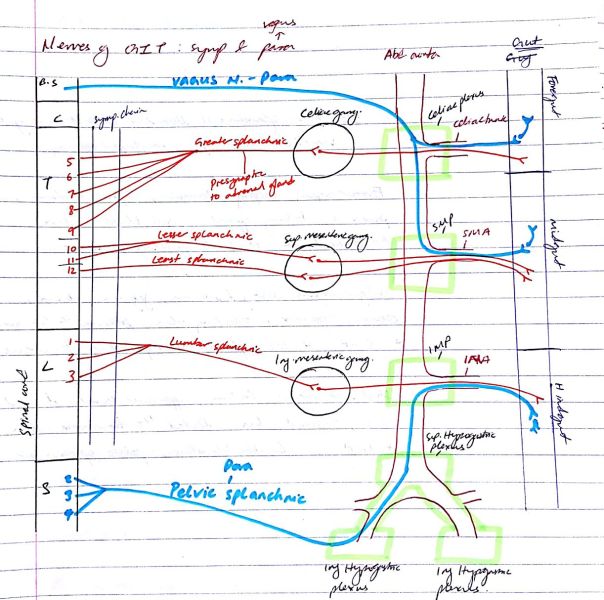 vagus
Nerves of GIT : symp & para
Abd aorta
Gut
B.S
vagus N. - Para
Foregut
C
symp. chain
Celiac gang.
Celiac plexus
celiac trunk
Greater splanchnic
T
5
6
7
8
9
Presynaptic
to adrenal gland
Lesser splanchnic
10
11
Sup. mesenteric gang.
SMP
SMA
Midgut
Least splanchnic
12
L
1
2
3
Lumbar splanchnic
Inf. mesenteric gang.
IMP
IMA
Hindgut
Spinal cord
Sup. Hypogastric
plexus
S
2
3
4
Para
Pelvic splanchnic
Inf Hypogastric
plexus
Inf Hypogastric
plexus.